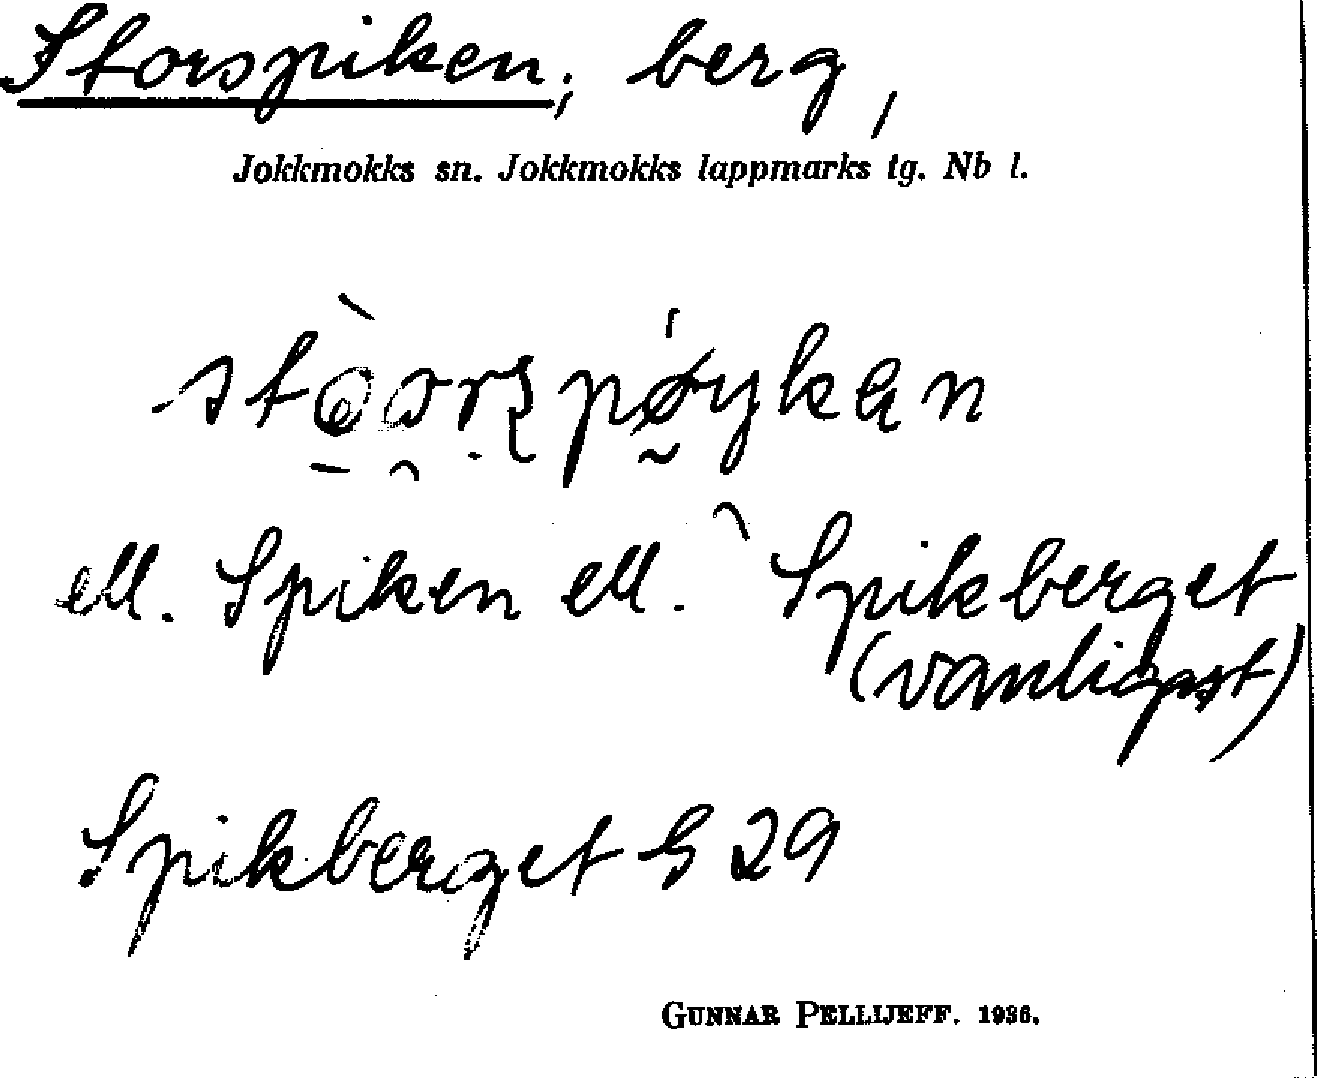 Storspiken; berg,
Jokkmokks sn. Jokkmokks lappmarks tg. Nb l.
ell. Spiken ell. Spikberget
(vanligast)
Spikberget G 29
GUNNAR PELLIJEFF. 1936.